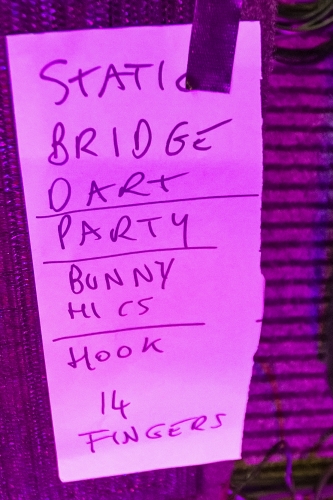 STATIC
BRIDGE
DART
PARTY
BUNNY
HICS
HOOK
14
FINGERS